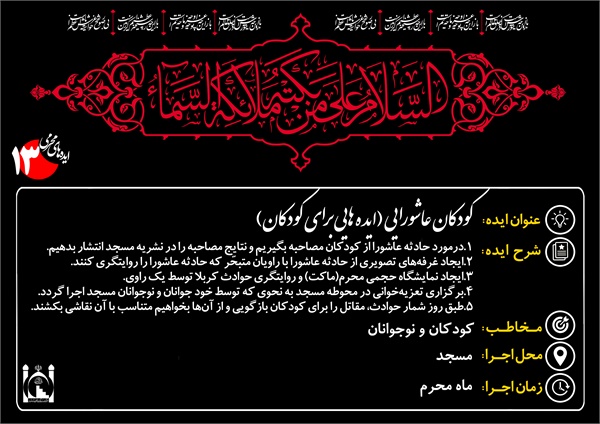 السَّلامُ عَلی مَن بَکَتهُ مَلائِکَةُ السَّماءِ
ایده‌های محرمی
۱۳
عنوان ایده: کودکان عاشورایی (ایده هایی برای کودکان)
شرح ایده: ۱.درمورد حادثه عاشورا از کودکان مصاحبه بگیریم و نتایج مصاحبه را در نشریه مسجد انتشار بدهیم.
۲.ایجاد غرفه‌های تصویری از حادثه عاشورا با راویان متبحر که حادثه عاشورا را روایتگری کنند.
۳.ایجاد نمایشگاه حجمی محرم(ماکت) و روایتگری حوادث کربلا توسط یک راوی.
۴.برگزاری تعزیه‌خوانی در محوطه مسجد به نحوی که توسط خود جوانان و نوجوانان مسجد اجرا گردد.
۵.طبق روز شمار حوادث، مقاتل را برای کودکان بازگویی و از آن‌ها بخواهیم متناسب با آن نقاشی بکشند.
مخاطب: کودکان و نوجوانان
محل اجرا: مسجد
زمان اجرا: ماه محرم